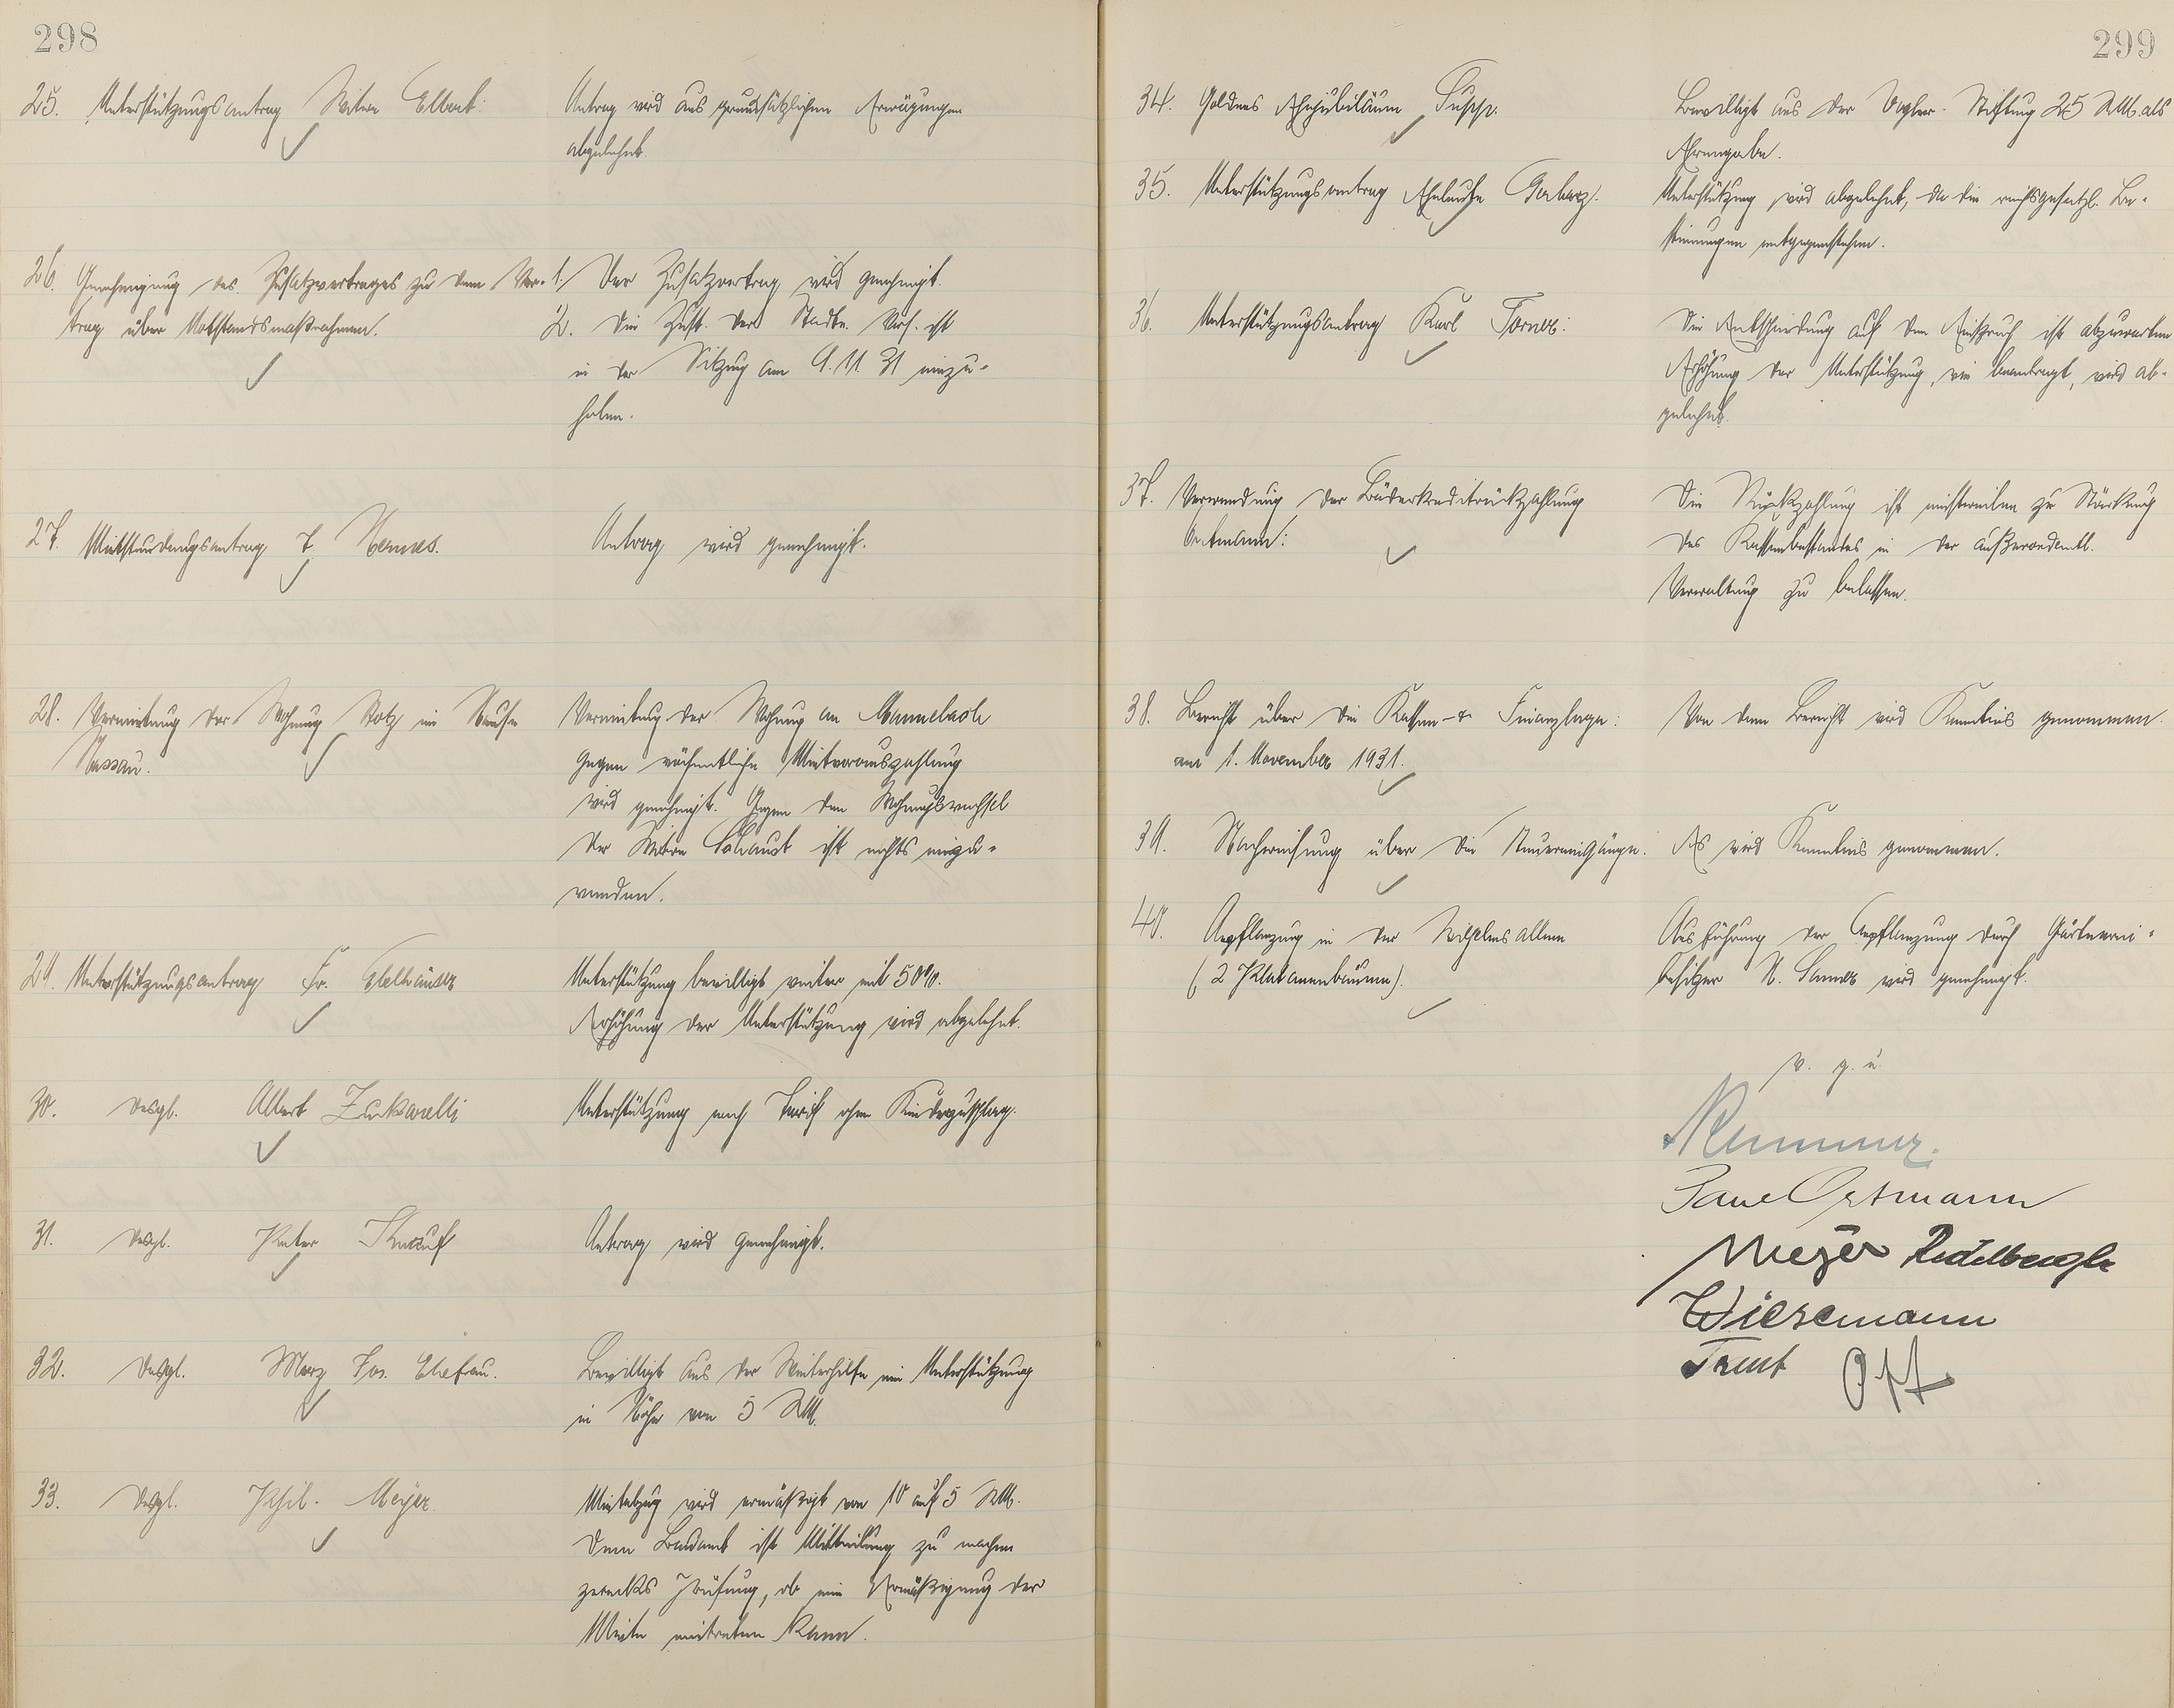 298
25. Unterstützungsantrag Witwe Elbert:
Antrag wird aus grundsätzlichen Erwägungen
abgelehnt.
26. Genehmigung des Zusatzvertrages zu dem Ver-
trag über Notstandsmaßnahmen.
1. Der Zusatzvertrag wird genehmigt.
2. Die Zust. der Stadtv. Vers. ist
in der Sitzung am 9.11.31 einzu-
holen.
27. Mietstundungsantrag J. Hennes.
Antrag wird genehmigt.
28. Vermietung der Wohnung Stotz im Hause
Nassau.
Vermietung der Wohnung an Mannebach
gegen wöchentliche Mietvorauszahlung
wird genehmigt. Gegen den Wohnungswechsel
der Witwe Schaust ist nichts einzu-
wenden.
29. Unterstützungsantrag Fr. Ebelhäuser
Unterstützung bewilligt weiter mit 50%.
Erhöhung der Unterstützung wird abgelehnt.
30. desgl. Albert Zuckarelli
Unterstützung nach Tarif ohne Kinderzuschlag.
31. desgl. Peter Knauf
Antrag wird genehmigt.
32. desgl. Merz Jos. Ehefrau.
Bewilligt aus der Winterhilfe eine Unterstützung
in Höhe von 5 RM.
33. desgl. Phil. Meyer.
Mietabzug wird ermäßigt von 10 auf 5 RM.
Dem Bauamt ist Mitteilung zu machen
zwecks Prüfung, ob eine Ermäßigung der
Miete eintreten kann.
299
34. Goldnes Ehejubiläum Supp.
Bewilligt aus der Vogler-Stiftung 25 RM. als
Ehrengabe.
35. Unterstützungsantrag Eheleute Gerharz.
Unterstützung wird abgelehnt, da die reichsgesetzl. Be-
stimmungen entgegenstehen.
36. Unterstützungsantrag Karl Forner:
Die Entscheidung auf den Einspruch ist abzuwarten
Erhöhung der Unterstützung, wie beantragt, wird ab-
gelehnt.
37. Verwendung der Bäderkreditrückzahlung
Ortmann:
Die Rückzahlung ist einstweilen zu Stärkung
des Kassenbestandes in der außerordentl.
Verwaltung zu belassen.
38. Bericht über die Kassen- & Finanzlage:
am 1. November 1931.
Von dem Bericht wird Kenntnis genommen.
39. Nachweisung über die Steuereingänge.
Es wird Kenntnis genommen.
40. Anpflanzung in der Wilhelmsallee
(2 Platanenbäume).
Ausführung der Anpflanzung durch Gärtnerei-
besitzer N. Sanner wird genehmigt.
v. g. u.
Paul Ortmann
Meyer
Wiesemann
Trent Ott